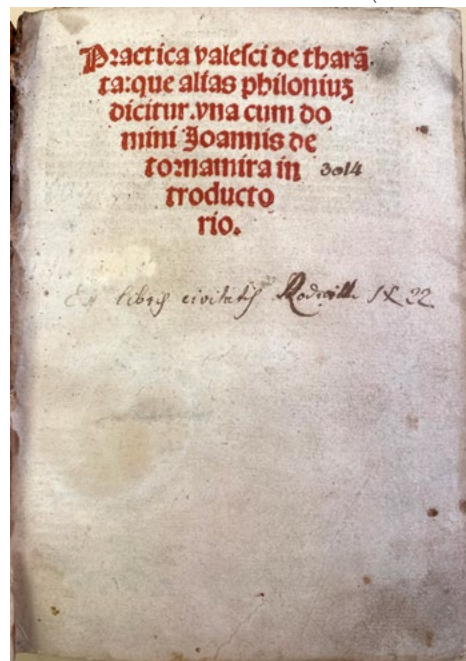 Practica valesci de tharā
ta:que alias philoniuʒ
dicitur.vna cum do
mini Joannis de
tornamira in
troducto
rio.
3014
Ex libris civitatis